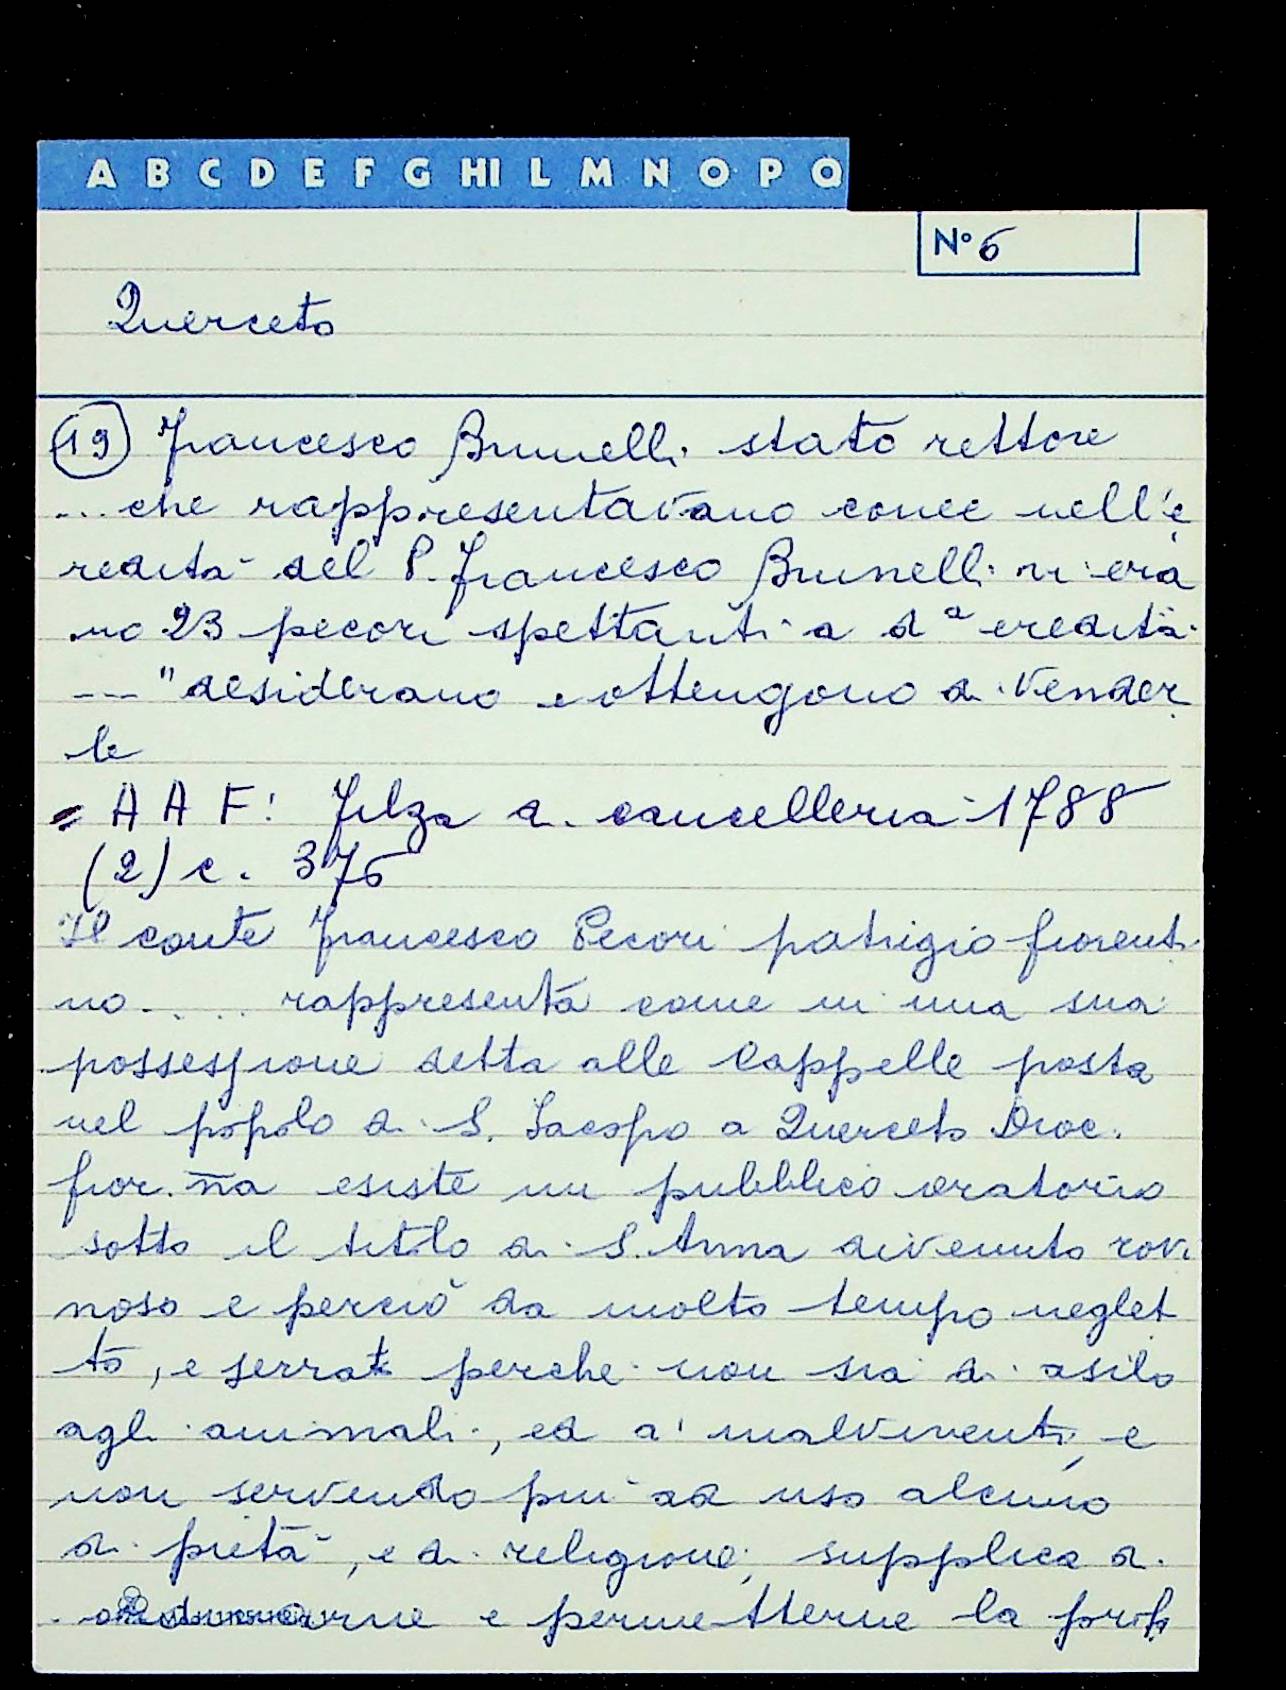 A B C D E F G HI L M N O P Q
N° 6
Querceto
19 Francesco Brunelli stato rettore
... che rappresentavano come nell'e
redità del P. Francesco Brunelli vi era
no 23 pecori spettanti a d.ª eredità
--- "desiderano e ottengono di vender
le
= A A F: Filza di cancelleria 1788
(2) c. 376
Il conte Francesco Pecori patrizio fiorenti
no .... rappresentà come in una sua
possessione detta alle Cappelle posta
nel popolo di S. Jacopo a Querceto Dioc.
fior.na esiste un pubblico oratorio
sotto il titolo di S. Anna divenuto rovi
noso e perciò da molto tempo neglet
to, e serrato perche non sia di asilo
agli animali, ed a' malviventi, e
non servendo piu ad uso alcuno
di pietà, e di religione, supplica di
e permetterne la prof